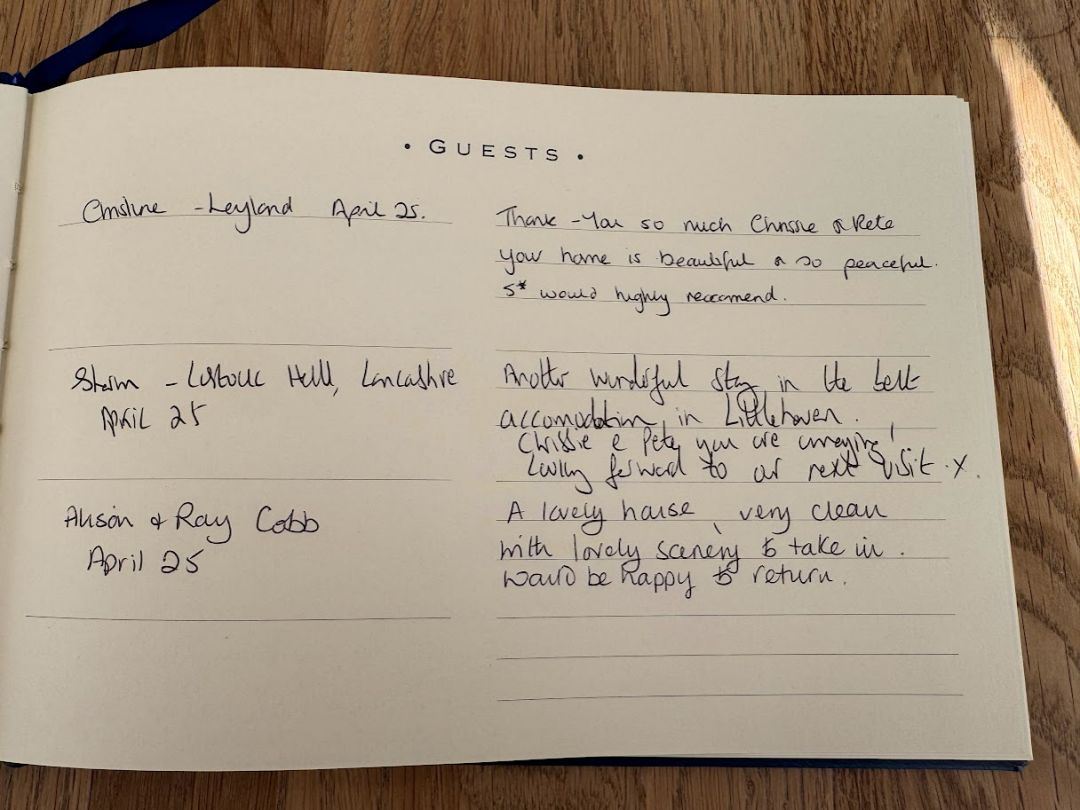 • GUESTS •
Christine - Leyland April 25.
Thank-You so much Chrissie & Pete
your home is beautiful & so peaceful.
5* would highly reccomend.
Lostock Hall, Lancashire
April 25
Another wonderful stay in the best
accomodation in Littlehaven.
Chrissie & Pete, you are amazing!
forward to our next visit. x.
Alison & Ray Cobb
April 25
A lovely house, very clean
with lovely scenery to take in.
Would be happy to return.